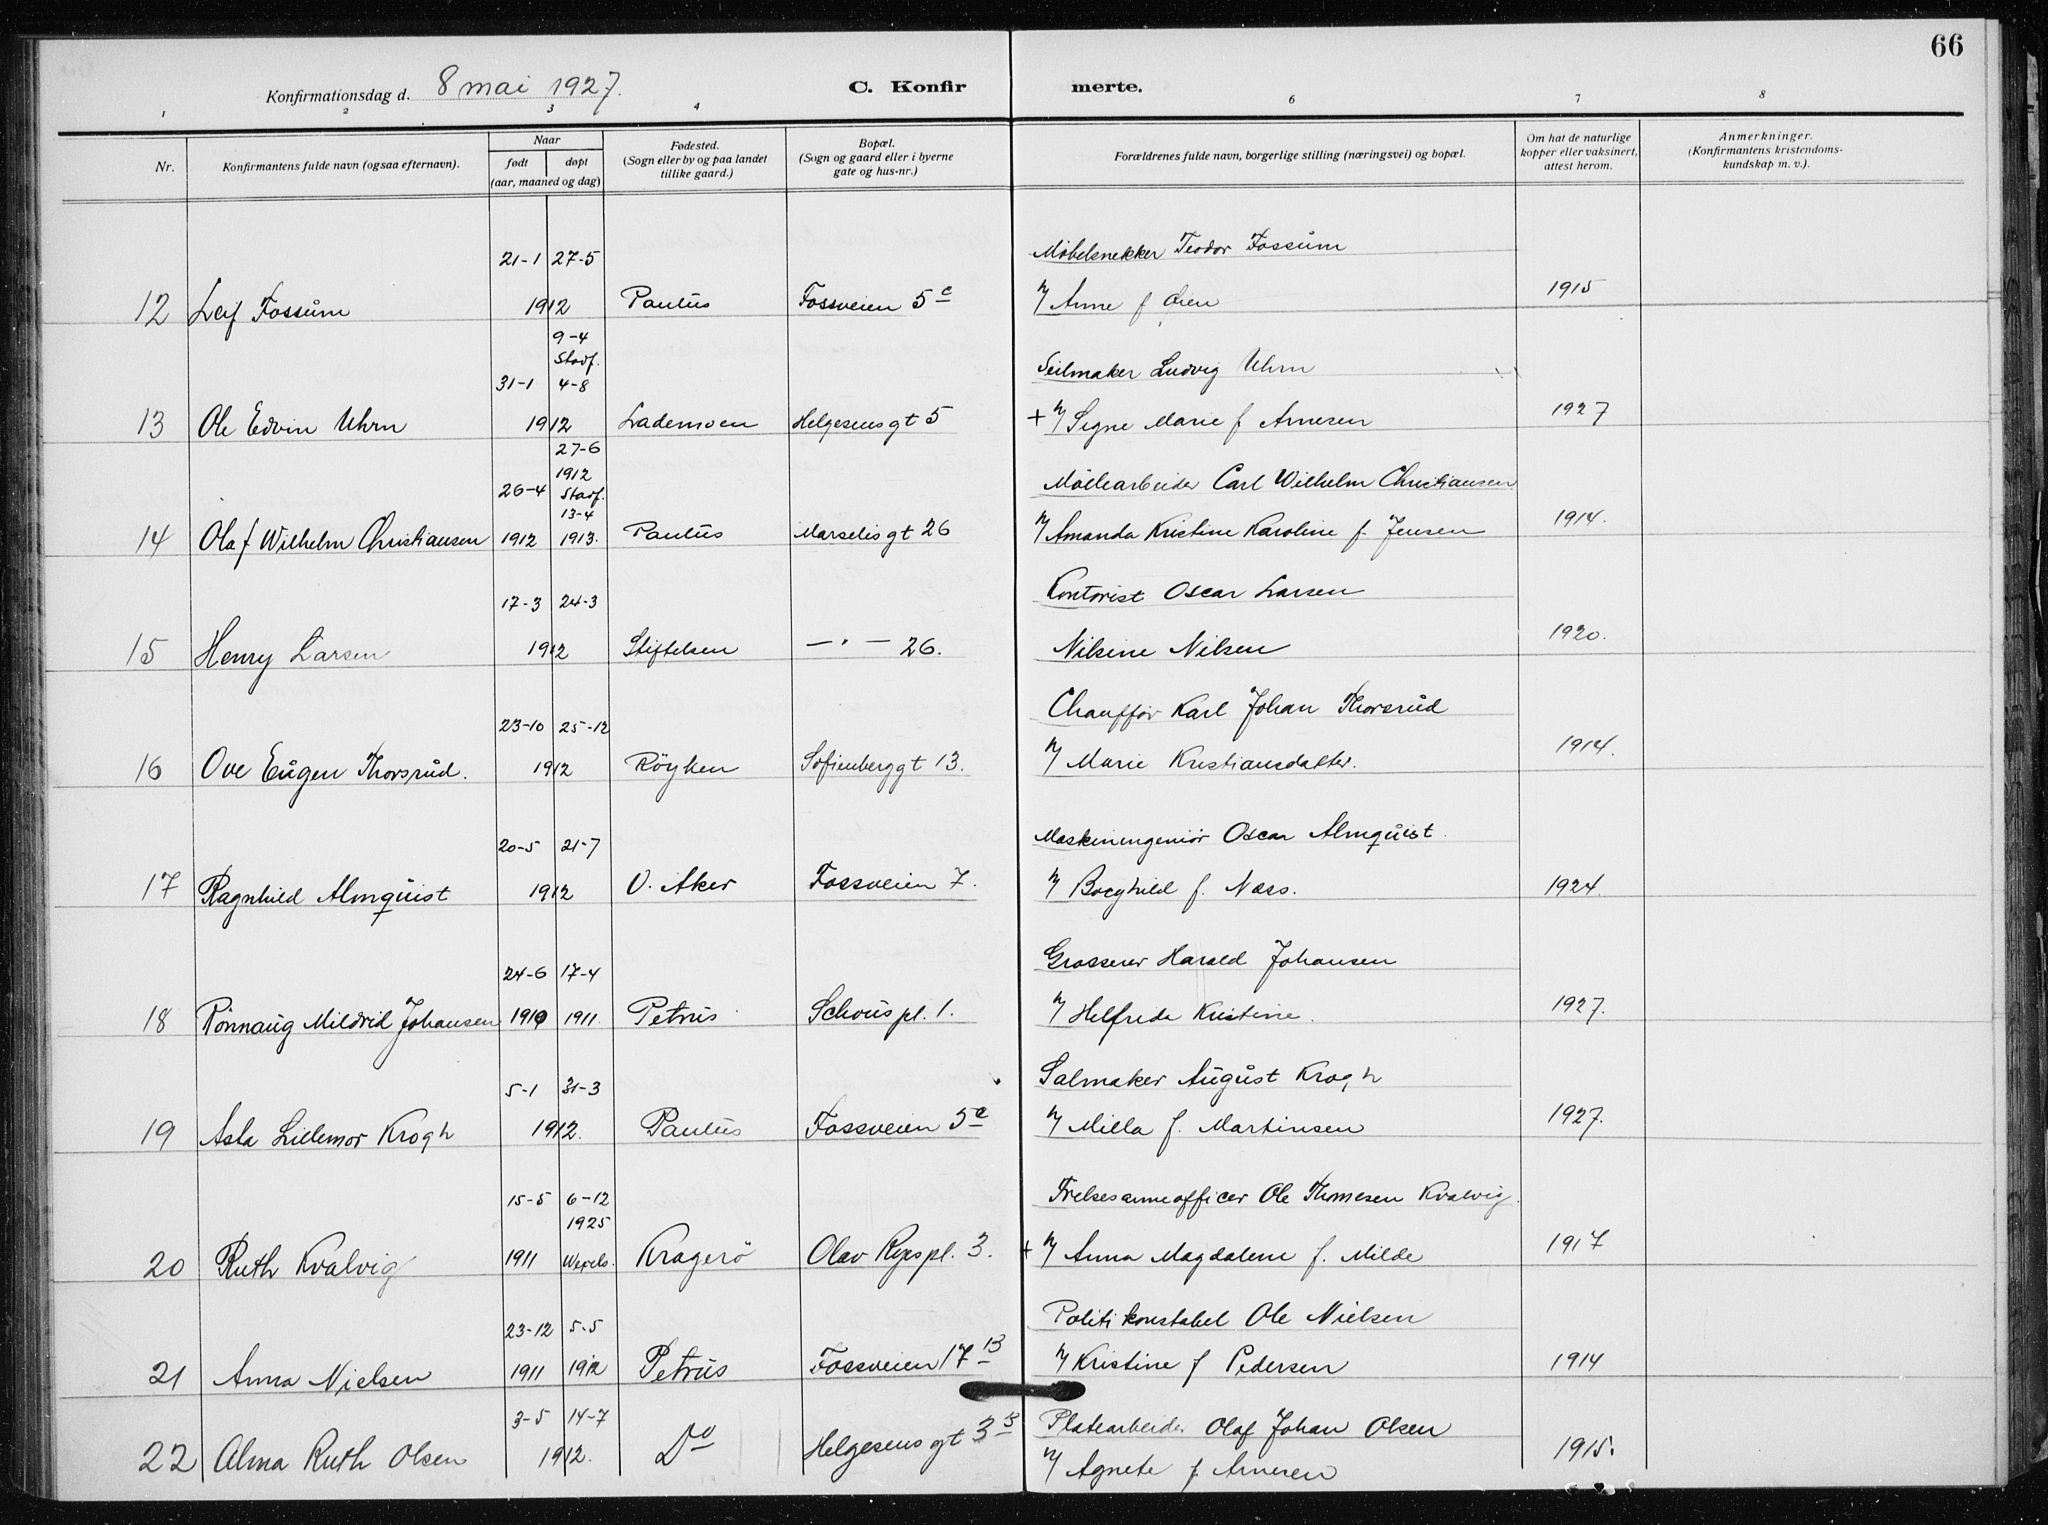 66
Konfirmationsdag d. 8 mai 1927.
C. Konfir merte.
1 2 3 4 6 7 8
Nr.
Konfirmantens fulde navn (ogsaa efternavn).
Naar
født døpt
(aar, maaned og dag)
Fødested.
(Sogn eller by og paa landet
tillike gaard.)
Bopæl.
(Sogn og gaard eller i byerne
gate og hus-nr.)
Forældrenes fulde navn, borgerlige stilling (næringsvei) og bopæl.
Om hat de naturlige
kopper eller vaksinert,
attest herom.
Anmerkninger.
(Konfirmantens kristendoms-
kundskap m. v.).
21-1 27-5 Møbelsnekker Teodor Fossum
12 Leif Fossum 1912 Paulus Fossveien 5c Anne f Øien 1915
9-4
Stadf.
31-1 4-8 Seilmaker Ludvig Uhrn
13 Ole Edvin Uhrn 1912 Lademoen Helgesensgt 5 + Signe Marie f Arnesen 1927
27-6
1912
26-4 Stadf. Møllearbeider Carl Wilhelm Christiansen
13-4
14 Olaf Wilhelm Christiansen 1912 1913. Paulus Marselisgt 26 Amanda Kristine Karoline f. Jensen 1914.
17-3 24-3 Kontorist Oscar Larsen
15 Henry Larsen 1912 Stiftelsen — " — 26. Nilsine Nilsen 1920.
23-10 25-12 Chauffør Karl Johan Thorsrud
16 Ove Eugen Thorsrud. 1912 Röyken Sofienberggt 13. Marie Kristiansdatter. 1914.
20-5 21-7 Maskiningeniør Oscar Almquist.
17 Ragnhild Almquist 1912 V. Aker Fossveien 7. Borghild f. Næss. 1924.
24-6 17-4 Grosserer Harald Johansen
18 Rönnaug Mildrid Johansen 1910 1911. Petrus Schous pl. 1. Helfrida Kristine. 1927.
5-1 31-3 Salmaker August Krogh
19 Asla Lillemor Krogh 1912. Paulus Fossveien 5c Milla f. Martinsen 1927.
15-5 6-12 Frelsesarmeofficer Ole Thomesen Kvalvig.
1925
20 Ruth Kvalvig 1911 Wexels. Kragerö Olav Ryespl. 3. + Anna Magdalene f. Milde 1917
23-12 5-5 Politikonstabel Ole Nielsen
21 Anna Nielsen 1911 1912 Petrus Fossveien 17 B Kristine f Pedersen 1914
3-5 14-7 Platearbeider Olaf Johan Olsen
22 Alma Ruth Olsen 1912. Do Helgesens gt 3 B Agnete f. Arnesen 1915.